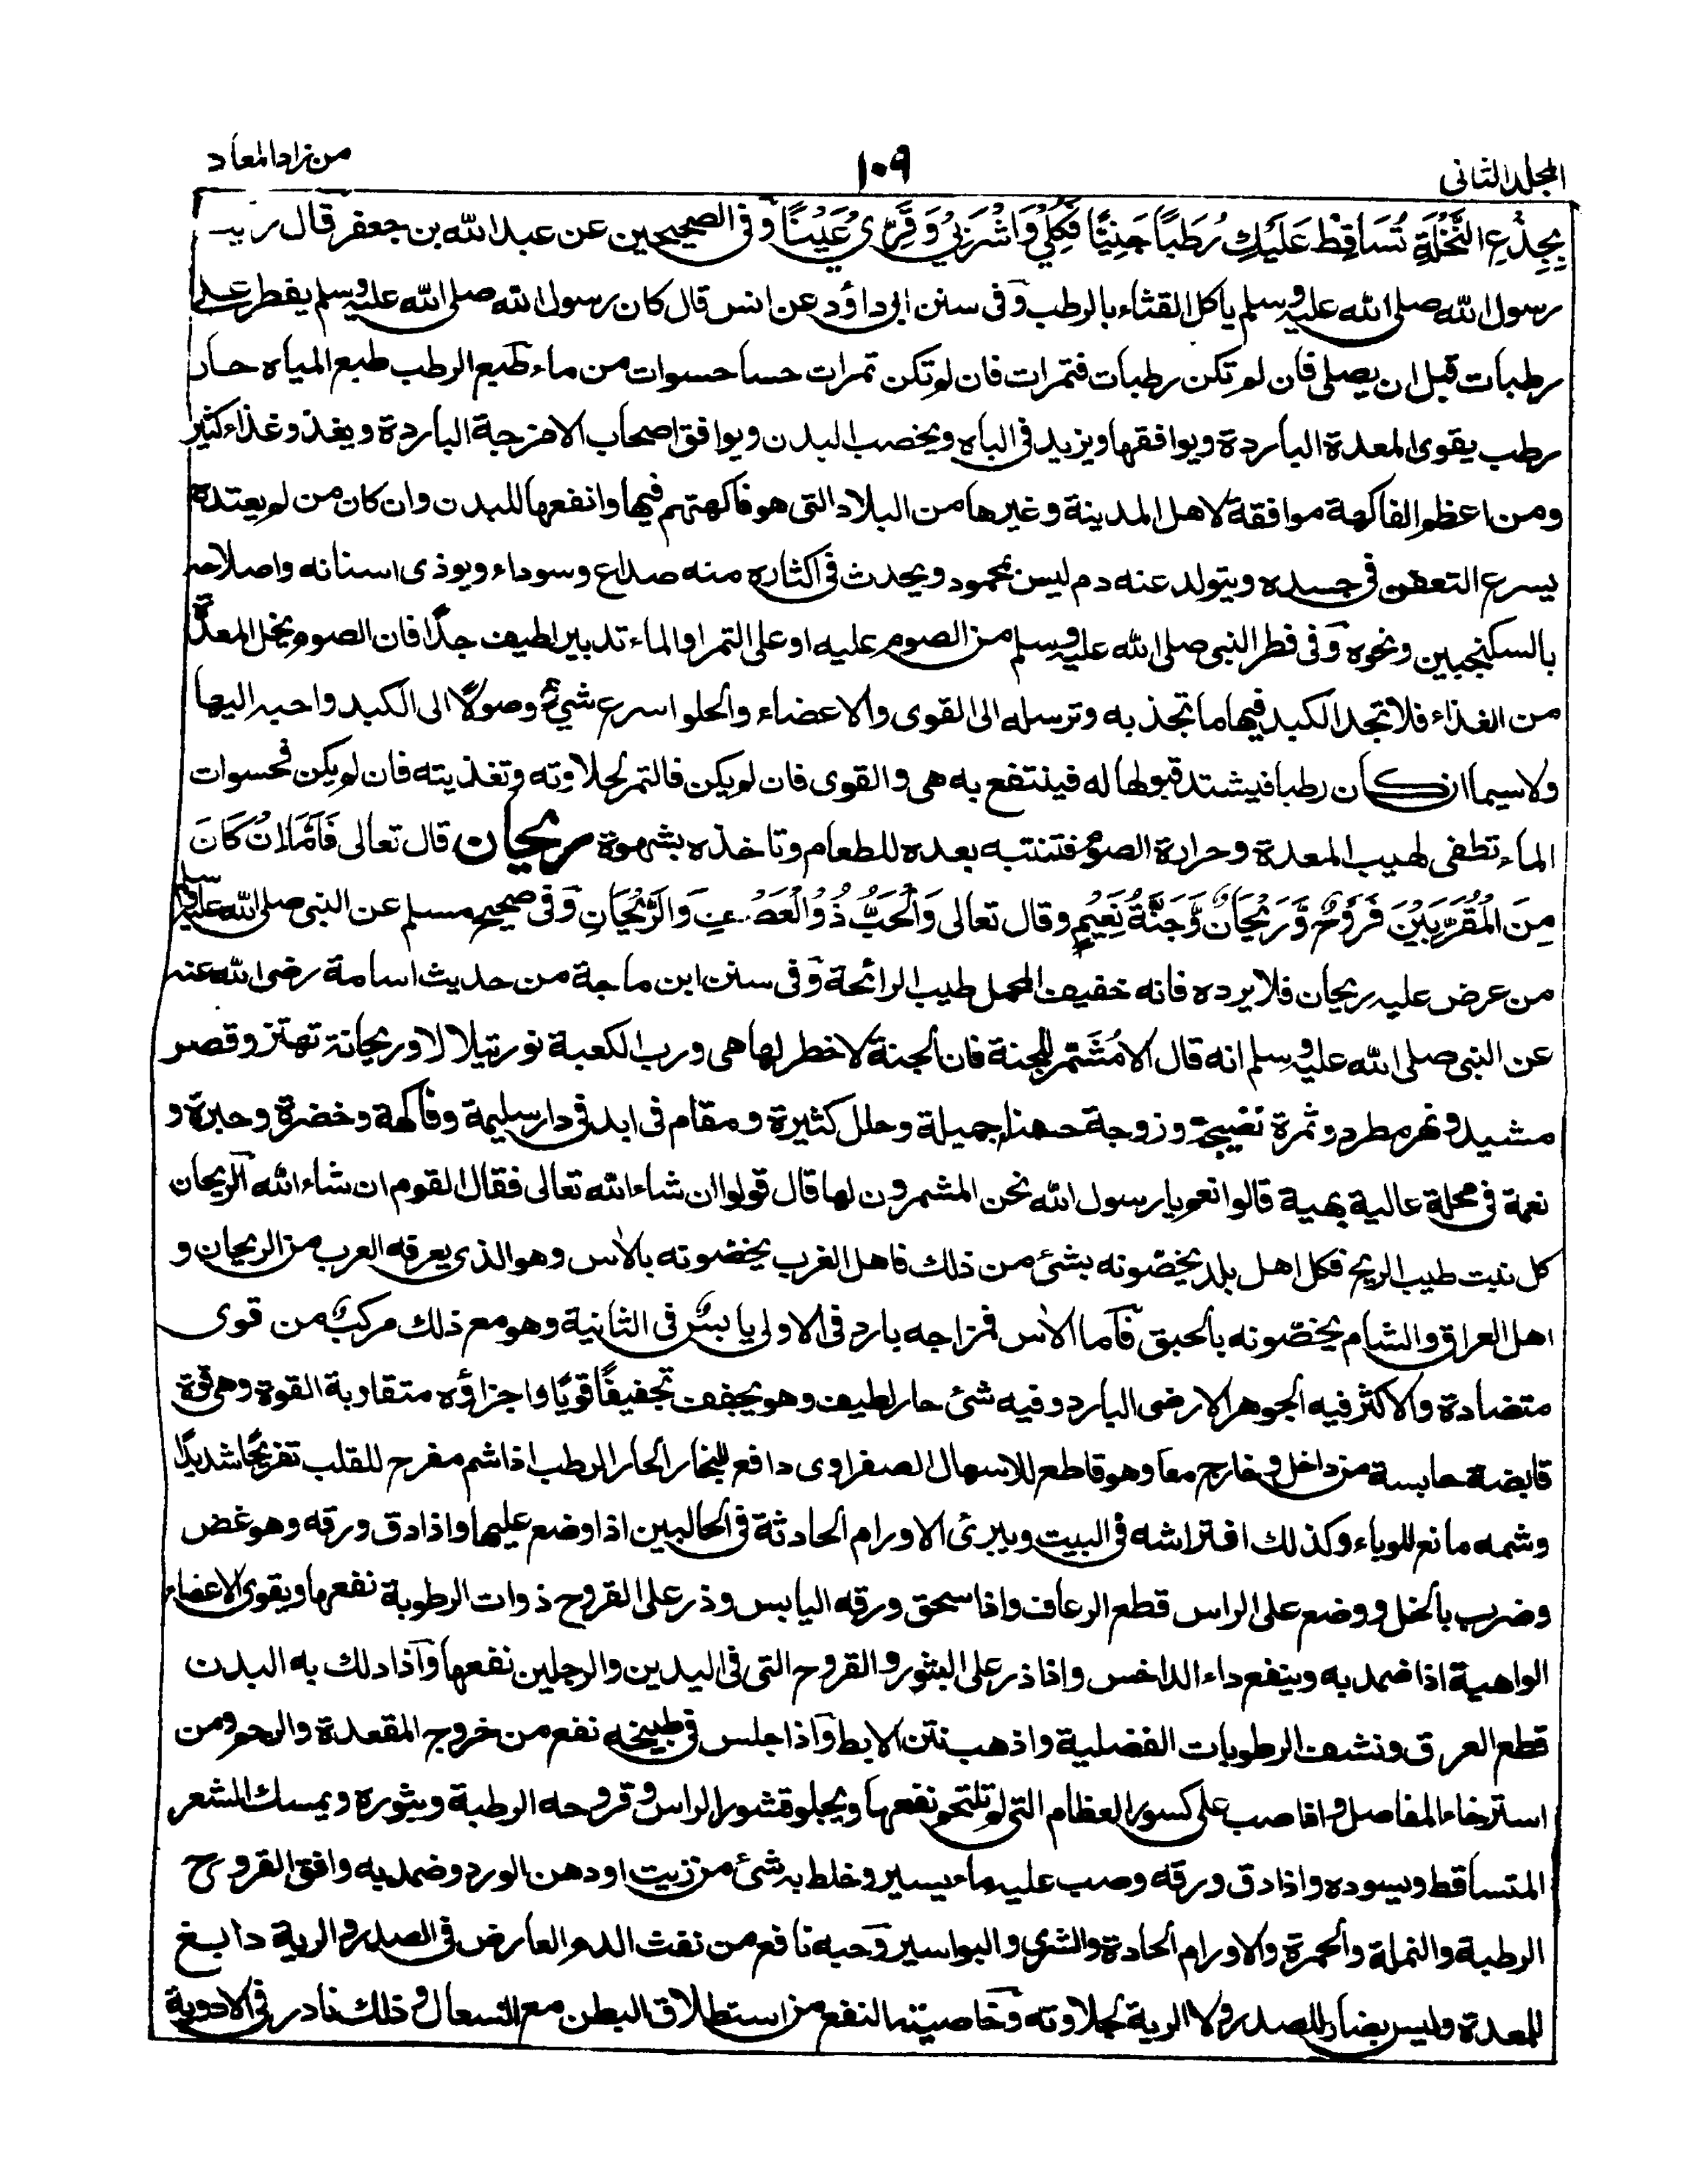 المجلد الثانى
١٠٩
من زاد المعاد
بِجِذْعِ النَّخْلَةِ تُسَاقِطْ عَلَيْكِ رُطَبًا جَنِيًّا فَكُلِي وَاشْرَبِي وَقَرِّي عَيْنًا وفى الصحيحين عن عبد الله بن جعفر قال رايت
رسول الله صلى الله عليه وسلم ياكل القثاء بالرطب وفى سنن ابى داؤد عن انس قال كان رسول الله صلى الله عليه وسلم يفطر على
رطبات قبل ان يصلى فان لم تكن رطبات فتمرات فان لم تكن تمرات حسا حسوات من ماء طبع الرطب طبع المياه حار
رطب يقوى المعدة الباردة ويوافقها ويزيد فى الباه ويخصب البدن ويوافق اصحاب الامزجة الباردة ويغذو غذاء كثيرا
ومن اعظم الفاكهة موافقة لاهل المدينة وغيرها من البلاد التى هو فاكهتهم فيها وانفعها للبدن وان كان من لم يعتده
يسرع التعفن فى جسده ويتولد عنه دم ليس بمحمود ويحدث فى اكثاره منه صداع وسوداء ويوذى اسنانه واصلاحه
بالسكنجبين ونحوه وفى فطر النبى صلى الله عليه وسلم من الصوم عليه او على التمر او الماء تدبير لطيف جدًّا فان الصوم يخلى المعدة
من الغذاء فلا تجد الكبد فيها ما تجذبه وترسله الى القوى والاعضاء والحلو اسرع شيء وصولًا الى الكبد واحبه اليها
ولاسيما ان كان رطبا فيشتد قبولها له فينتفع به هى والقوى فان لم يكن فالتمر لحلاوته وتغذيته فان لم يكن فحسوات
الماء تطفى لهيب المعدة وحرارة الصوم فتنتبه بعده للطعام وتاخذه بشهوة ريحان قال تعالى فَاَمَّا اِنْ كَانَ
مِنَ الْمُقَرَّبِيْنَ فَرَوْحٌ وَّرَيْحَانٌ وَّجَنَّةُ نَعِيْمٍ وقال تعالى وَالْحَبُّ ذُو الْعَصْفِ وَالرَّيْحَانِ وفى صحيح مسلم عن النبى صلى الله عليه وسلم
من عرض عليه ريحان فلا يرده فانه خفيف المحمل طيب الرائحة وفى سنن ابن ماجة من حديث اسامة رضى الله عنه
عن النبى صلى الله عليه وسلم انه قال الا مُشَمِّر للجنة فان الجنة لا خطر لها هى ورب الكعبة نور يتلالا وريحانة تهتز وقصر
مشيد ونهر مطرد وثمرة نضيجة وزوجة حسناء جميلة وحلل كثيرة ومقام فى ابد فى دار سليمة وفاكهة وخضرة وحبرة و
نعمة فى محلة عالية بهية قالوا نعم يا رسول الله نحن المشمرون لها قال قولوا ان شاء الله تعالى فقال القوم ان شاء الله الريحان
كل نبت طيب الريح فكل اهل بلد يخصّونه بشئ من ذلك فاهل الغرب يخصّونه بالآس وهو الذى يعرفه العرب من الريحان و
اهل العراق والشام يخصّونه بالحبق فاما الآس فمزاجه بارد فى الاولى يابسٌ فى الثانية وهو مع ذلك مركبٌ من قوى
متضادة والاكثر فيه الجوهر الارضى البارد وفيه شئ حار لطيف وهو يجفف تجفيفًا قويًا واجزاؤه متقاربة القوة وهى قوة
قابضة حابسة من داخل وخارج معا وهو قاطع للاسهال الصفراوى دافع للبخار الحار الرطب اذا شم مفرح للقلب تفريحًا شديدًا
وشمه مانع للوباء وكذلك افتراشه فى البيت ويبرئ الاورام الحادثة فى الحالبين اذا وضع عليها واذا دق ورقه وهو غض
وضرب بالخل ووضع على الراس قطع الرعاف واذا سحق ورقه اليابس وذر على القروح ذوات الرطوبة نفعها ويقوى الاعضاء
الواهية اذا ضمد به وينفع داء الداخس واذا ذر على البثور والقروح التى فى اليدين والرجلين نفعها واذا دلك به البدن
قطع العرق ونشف الرطوبات الفضلية واذهب نتن الابط واذا جلس فى طبيخه نفع من خروج المقعدة والرحم ومن
استرخاء المفاصل واذا صب على كسور العظام التى لم تلتحم نفعها ويجلو قشور الراس وقروحه الرطبة وبثوره ويمسك الشعر
المتساقط ويسوده واذا دق ورقه وصب عليه ماء يسير وخلط به شئ من زيت او دهن الورد وضمد به وافق القروح
الرطبة والنملة والحمرة والاورام الحادة والشرى والبواسير وحبه نافع من نفث الدم العارض فى الصدر والرية دابغ
للمعدة وليس بضار للصدر ولا الرية لحلاوته وخاصيتها النفع من استطلاق البطن مع السعال وذلك نادر فى الادوية